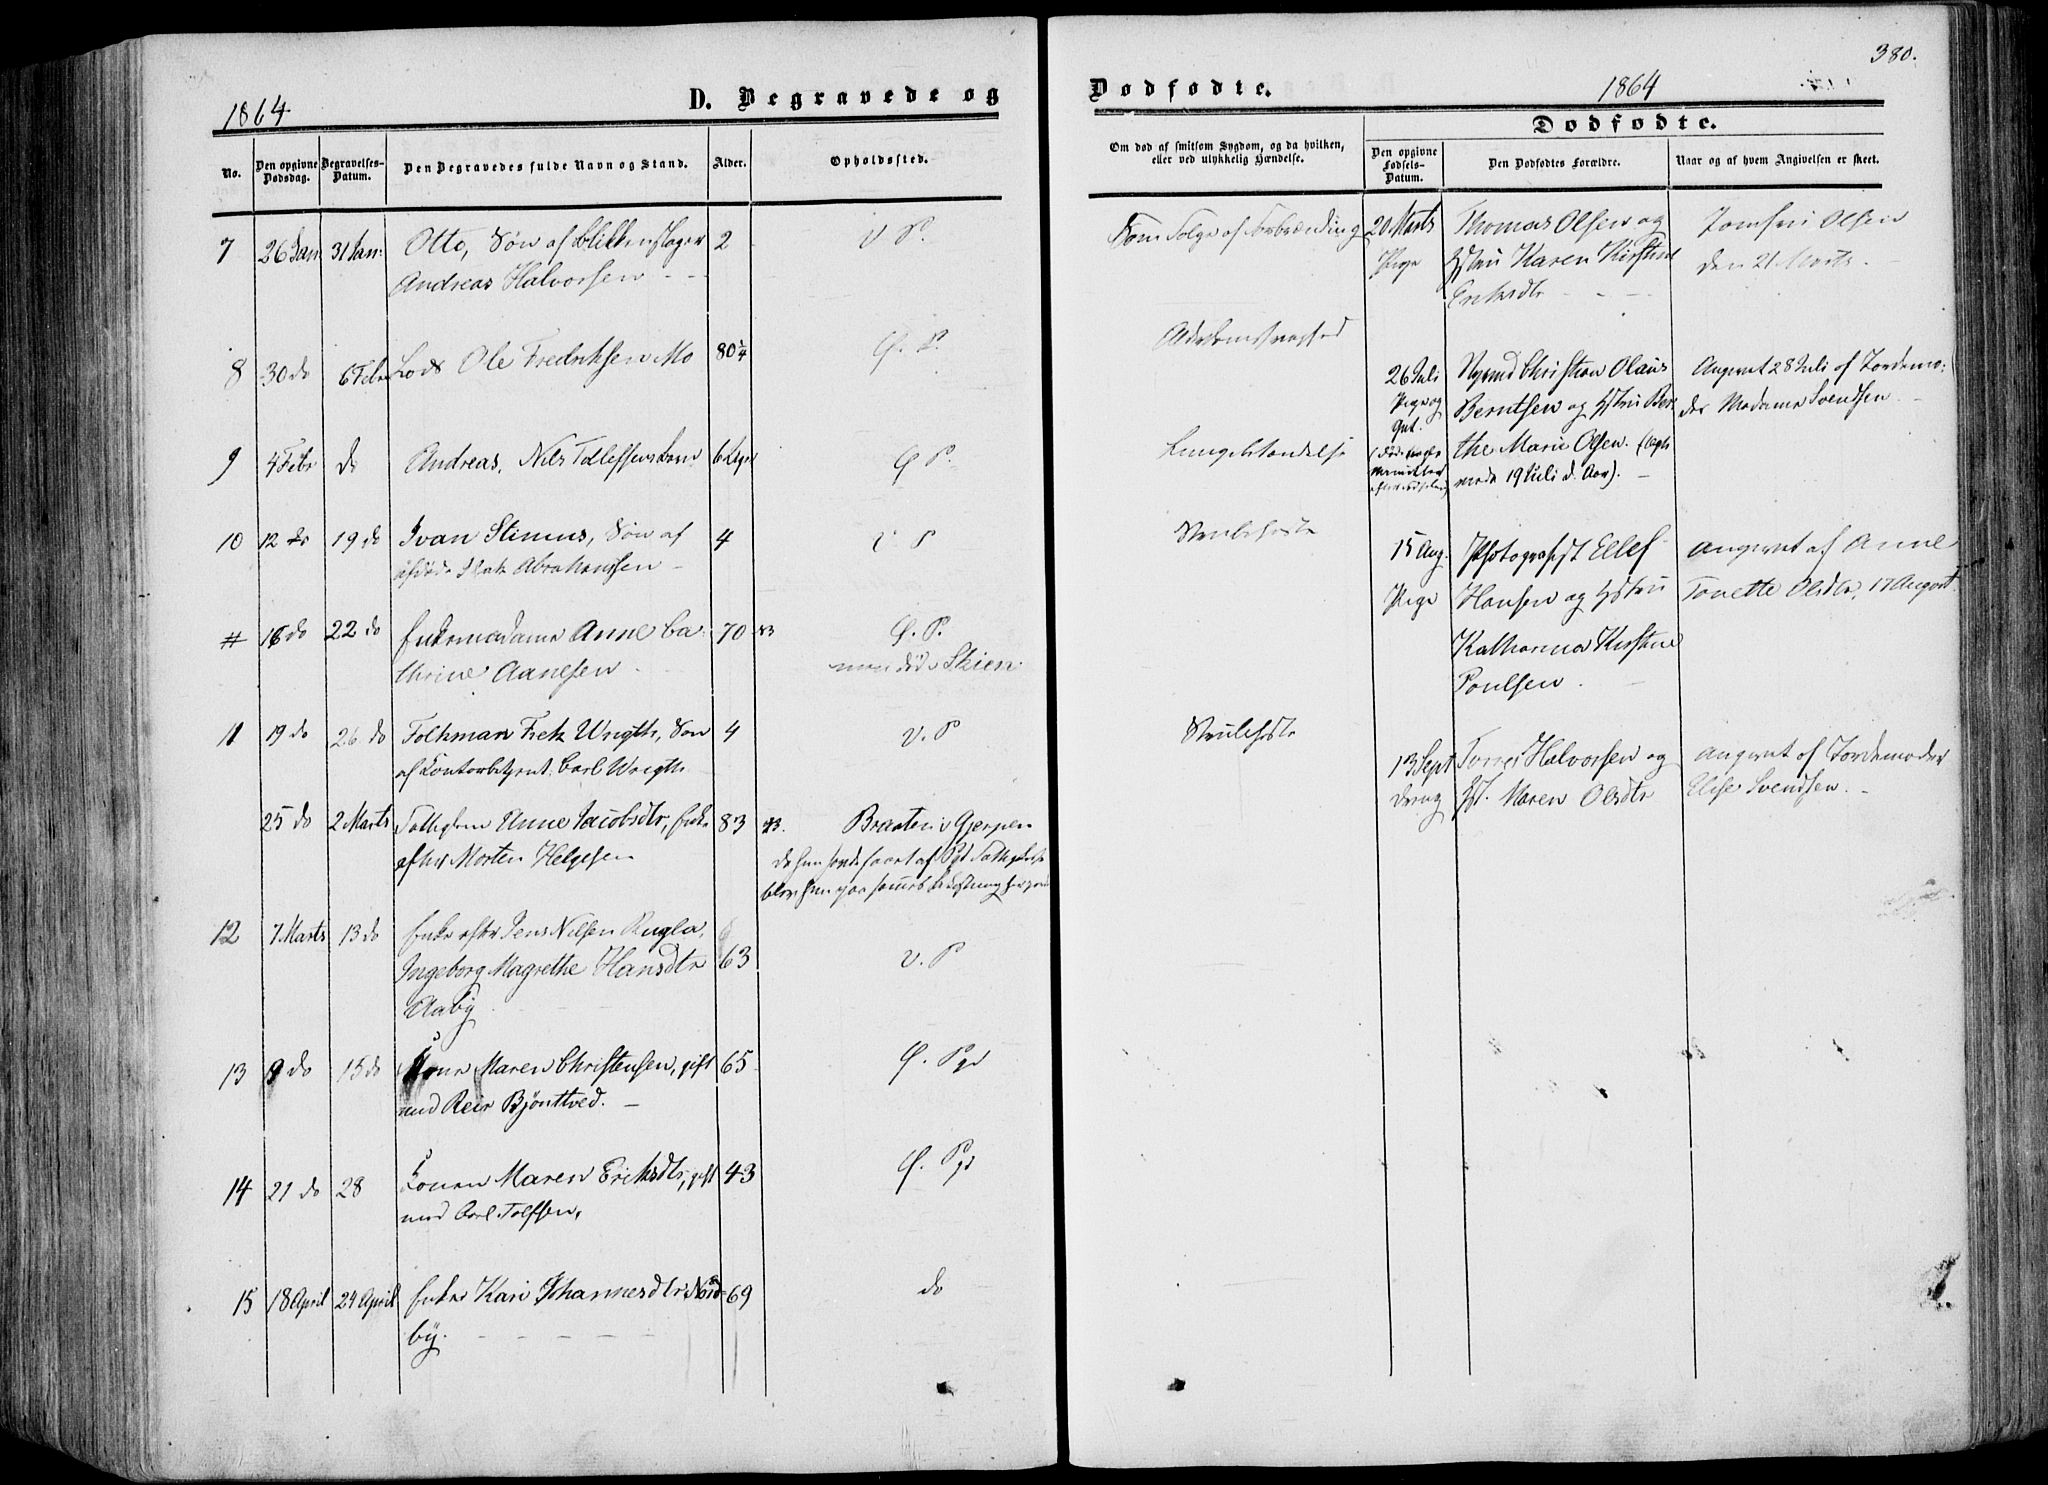 1864
D. Begravede og
No.
Den opgivne Dødsdag.
Begravelses-Datum.
Den Begravedes fulde Navn og Stand.
Alder.
Opholdssted.
7 26 Jan 31 Jan: Otto, Søn af Blikkenslager 2 V P.
Andreas Halvorsen - -
8 30 do 6 Febr Lods Ole Fredriksen Mo 80 1/4 Ø. P.
9 4 Febr do Andreas, Nils Tollefsens Søn 6 Ø P.
10 12 do 19 do Ivan Stinius, Søn af 4 V P
afdøde Abrahamsen -
# 16 do 22 do Enkemadame Anne Ca- 70 Ø. P.
thrine Aanesen - men død i Skien
11 19 do 26 do Folkman Fretz Wrigth, Søn 4 V. P
af Contorbetjent Carl Wrigth
25 do 2 Marts Fattiglem Anne Jacobsdtr, Enke 83 Braaten i Gjerpen
efter Morten Helgesen
12 7 Marts 13 do Enke efter Jens Nilsen Rugla,
Ingeborg Magrethe Hansdtr 63 V. P
Aaby
13 9 do 15 do Kone Maren Christensen, gift 65 Ø. Pgd
med Reier Bjöntved. -
14 21 do 28 Konen Maren Eriksdtr, gift 43 Ø. Pgd
med Carl Tolfsen,
15 18 April 24 April Enke Kari Johannesdtr Nord- 69 do
by. - - - - -
380.
Dødfødte.
1864
Om død af smitsom Sygdom, og da hvilken,
eller ved ulykkelig Hændelse.
Dødfødte.
Den opgivne Fødsels-Datum.
Den Dødfødtes Forældre.
Naar og af hvem Angivelsen er skeet.
Som Følge af Forbrænding 20 Marts Thomas Olsen og Olsen
Pige Hstru Karen Kirstine den 21 Marts -
Eriksdtr - - -
Alderdomssvaghed
26 Juli Christian Olaus Angivet 28 Juli af Jordemo-
Pige og Berntsen og Hstru Ber- der Madame Svendsen -
Gut.
Lungebetændelse the Marie Olsen.
19 Juli d. Aar). -
Strubehoste
15 Aug. Photografist Ellef angivet af Anne
Pige Hansen og Hstru Tonette Olsdtr, 17 August
Katharina Kirstine
Poulsen. -
Strubehoste
13 Sept Torres Halvorsen og angivet af Jordemoder
dreng Hst. Maren Olsdtr Elise Svendsen. -